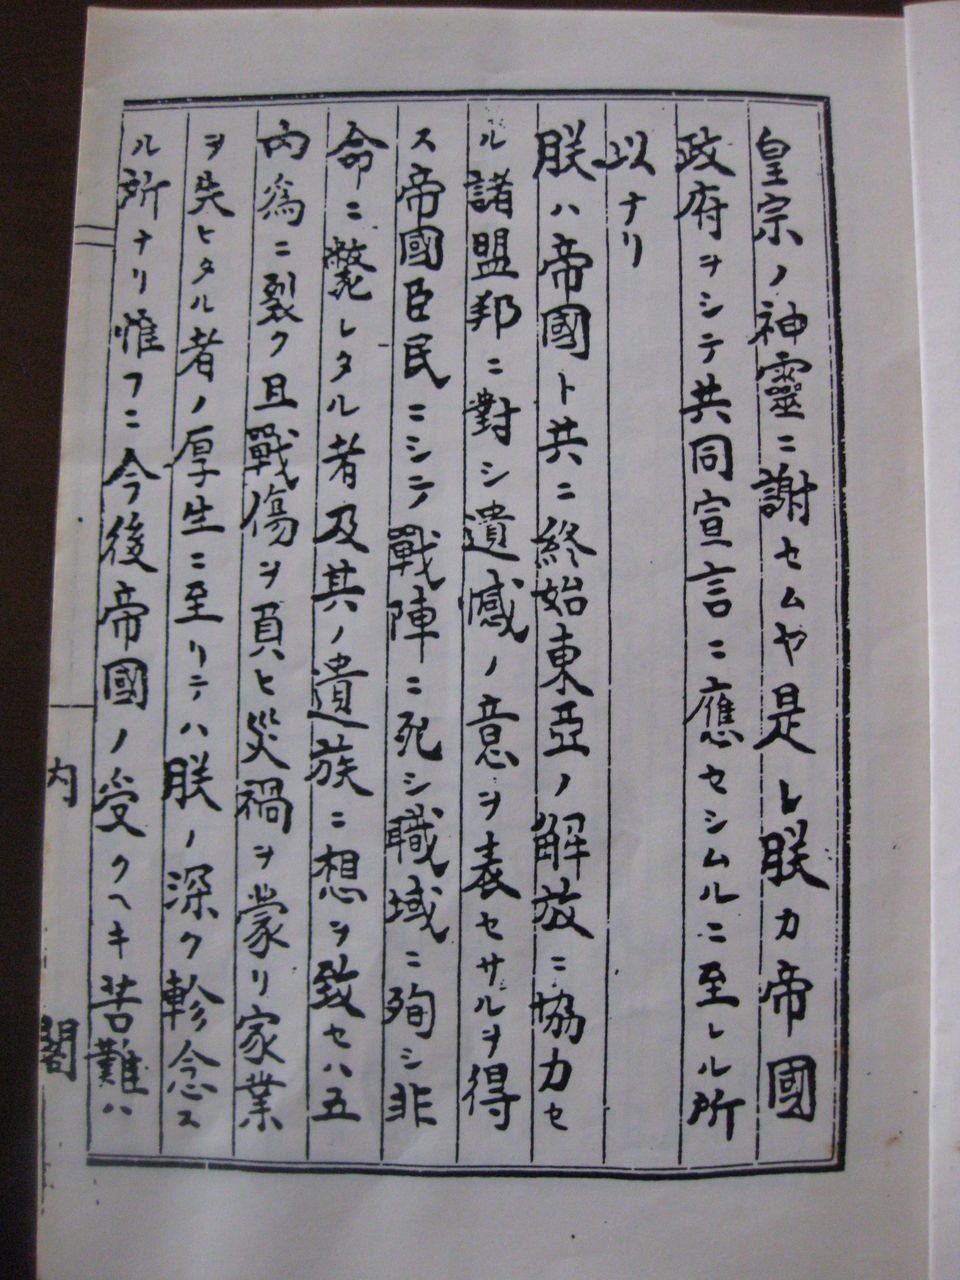 皇宗ノ神靈ニ謝セムヤ是レ朕カ帝國
政府ヲシテ共同宣言ニ應セシムルニ至レル所
以ナリ
朕ハ帝國ト共ニ終始東亞ノ解放ニ協力セ
ル諸盟邦ニ對シ遺憾ノ意ヲ表セサルヲ得
ス帝國臣民ニシテ戰陣ニ死シ職域ニ殉シ非
命ニ斃レタル者及其ノ遺族ニ想ヲ致セハ五
內爲ニ裂ク且戰傷ヲ負ヒ災禍ヲ蒙リ家業
ヲ失ヒタル者ノ厚生ニ至リテハ朕ノ深ク軫念ス
ル所ナリ惟フニ今後帝國ノ受クヘキ苦難ハ
内閣